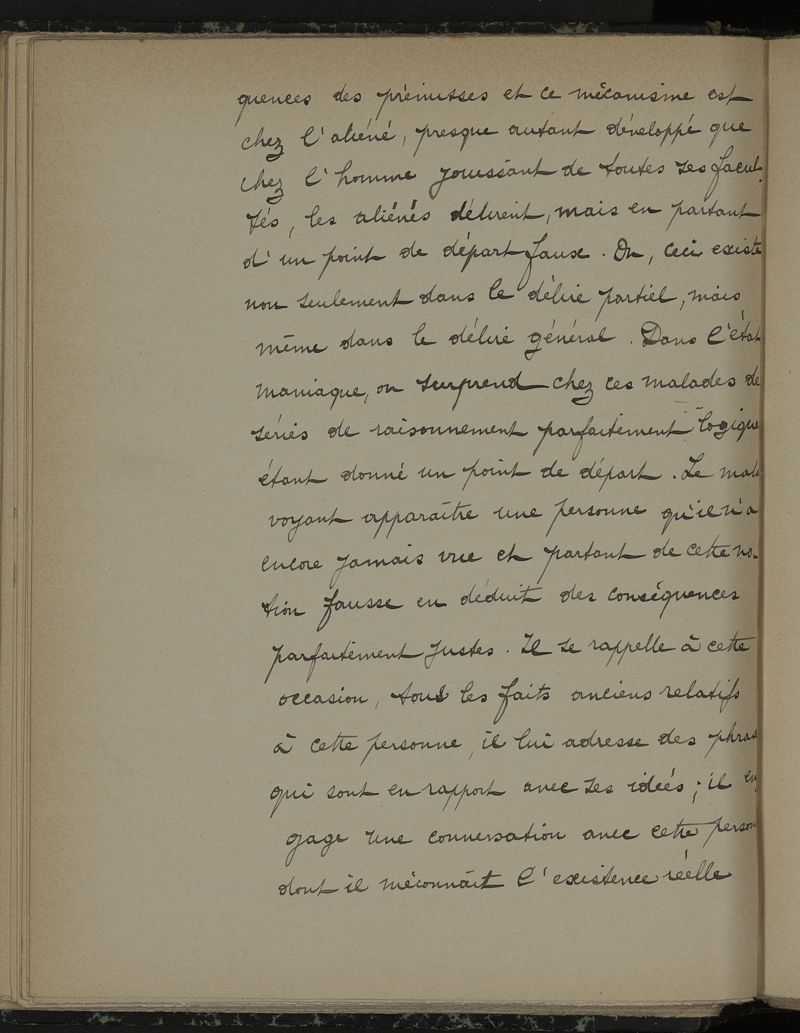 quences des prémisses et ce mécanisme est
chez l'aliéné, presque autant développé que
chez l'homme jouissant de toutes ses facul-
tés, les aliénés délirent, mais en partant
d'un point de départ faux. Or, ceci existe
non seulement dans le délire partiel, mais
même dans le délire général. Dans l'état
maniaque, on surprend chez ces malades de
séries de raisonnement parfaitement logique
étant donné un point de départ. Le mala
voyant apparaître une personne qu'il n'a
encore jamais vue et partant de cette no-
tion fausse en déduit des conséquences
parfaitement justes. Il se rappelle à cette
occasion, tous les faits anciens relatifs
à cette personne, il lui adresse des phras
qui sont en rapport avec ses idées; il en
gage une conversation avec cette person
dont il méconnaît l'existence réelle